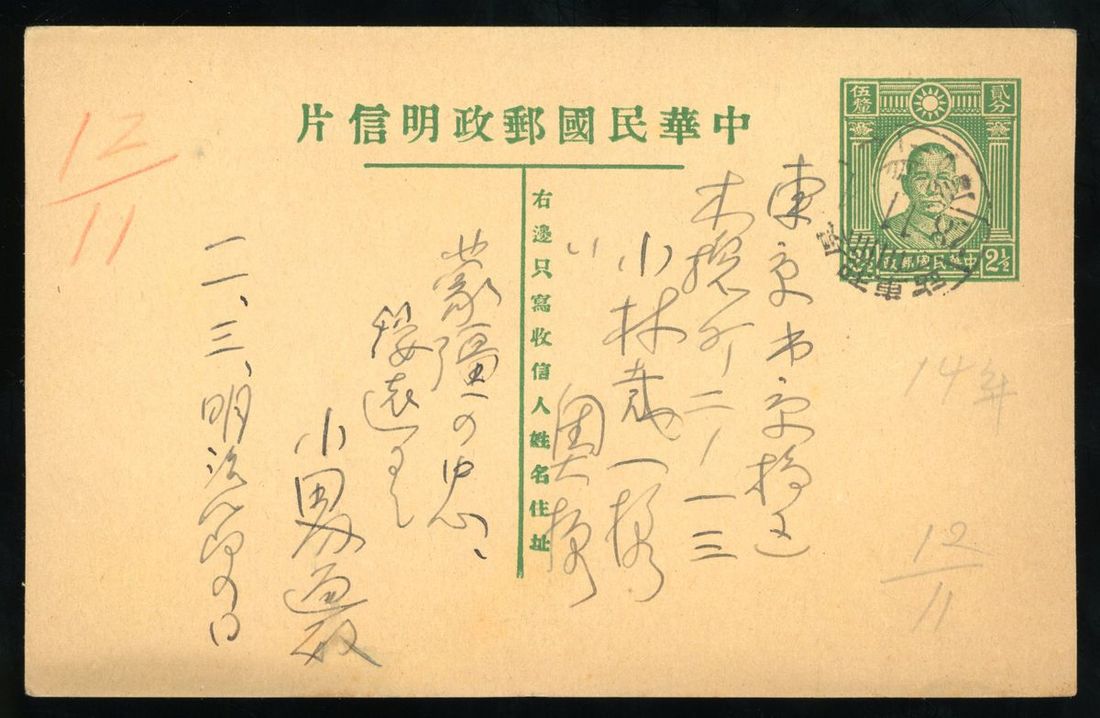 中華民國郵政明信片
貳分
伍釐
中華民國郵政
2½
右邊只寫收信人姓名住址
東京市京橋区
木挽町二ノ一三
小林義一様
〃 奥様
蒙疆の中心、
綏遠にて
小男
一一、三、明治節の日
12/11
14年
12/11